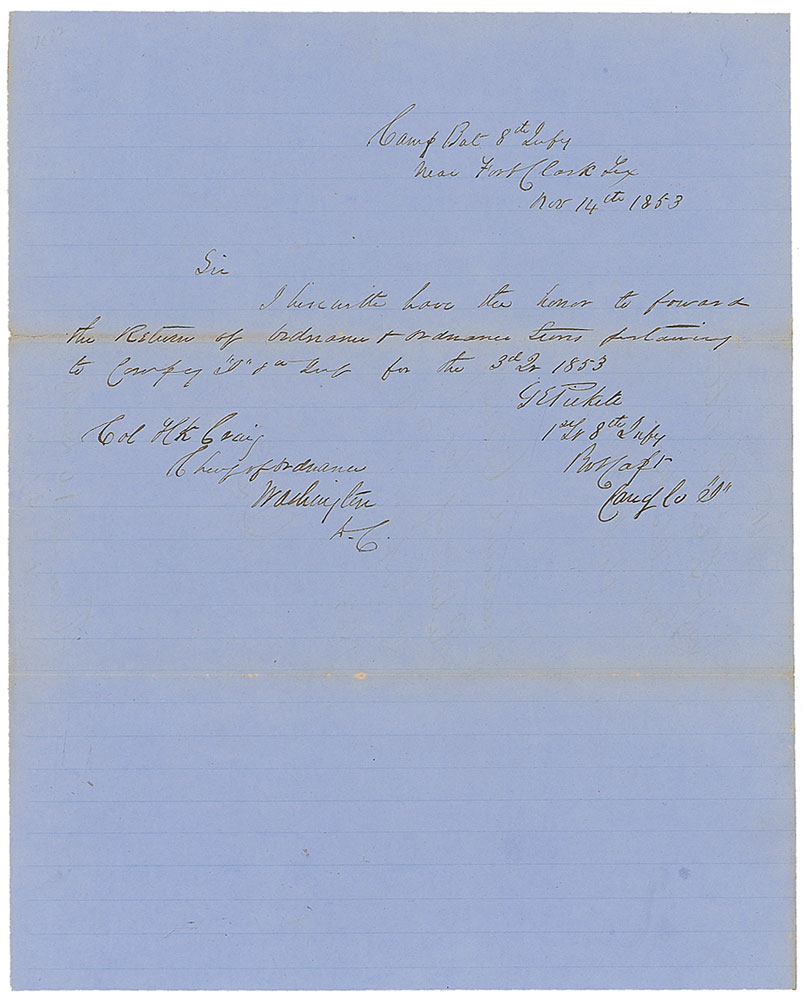 Camp Bat 8th Infy
Near Fort Clark Tex
Nov 14th 1853
Sir
I herewith have the honor to forward
the Return of Ordnance & Ordnance Stores pertaining
to Compy "I" 8th Inf for the 3rd Qr 1853
GEPickett
1st Lt 8th Infy
Bvt Capt
Comg Co "I"
Col HK Craig
Chief of Ordnance
Washington
D.C.